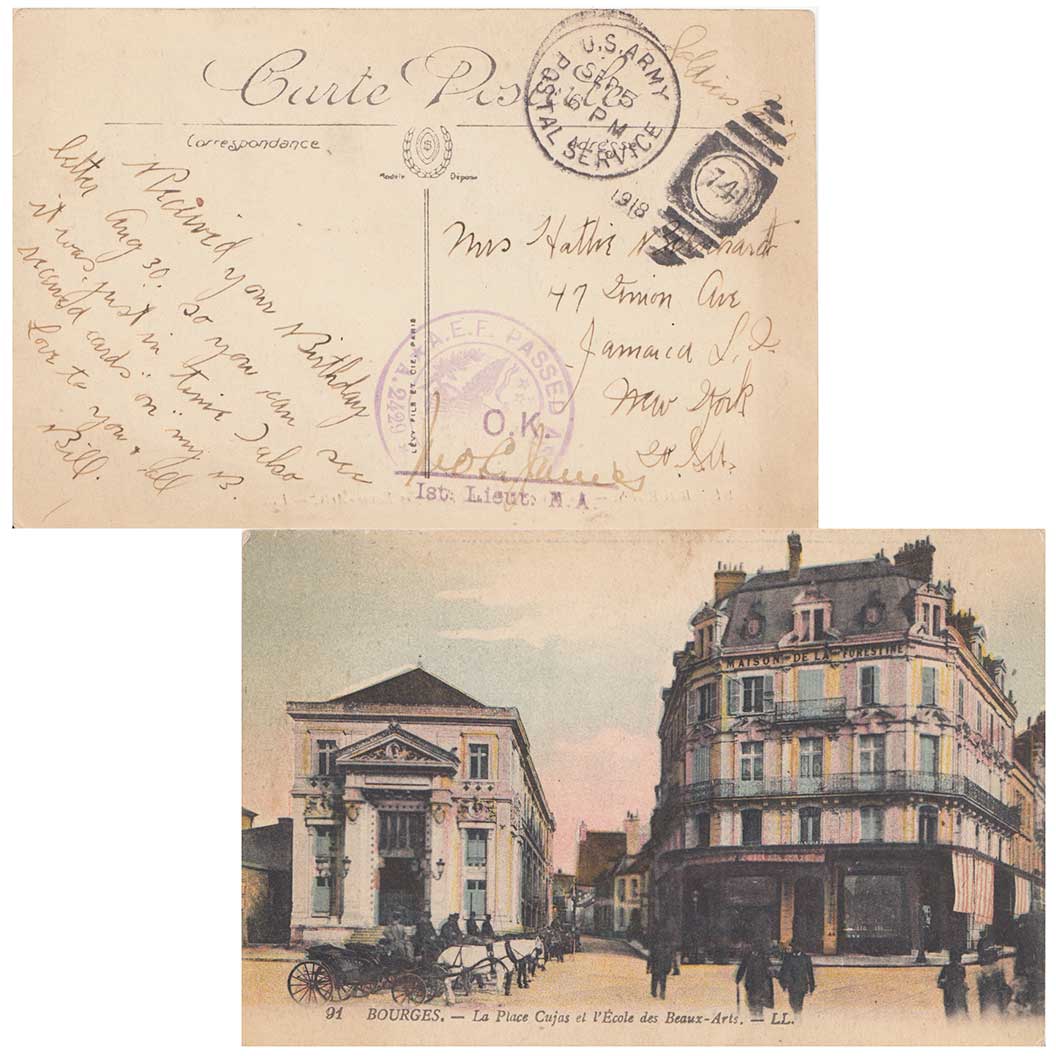 Carte Postale
Correspondance
Adresse
Modèle Déposé
U.S. ARMY
POSTAL SERVICE
SEP 5
6 PM
1918
741
Soldiers
Received your Birthday
letter Aug 30. so you can see
it was just in time I also
received cards on my B.
Love to you & all
Bill.
Mrs Hattie
47 Union Ave
Jamaica L.I.
New York
U.S.
LÉVY FILS ET CIE, PARIS
A.E.F. PASSED AS
A.2429
O.K.
1st. Lieut. M.A.
MAISON DE LA FORESTINE
91 BOURGES. — La Place Cujas et l'École des Beaux-Arts. — LL.